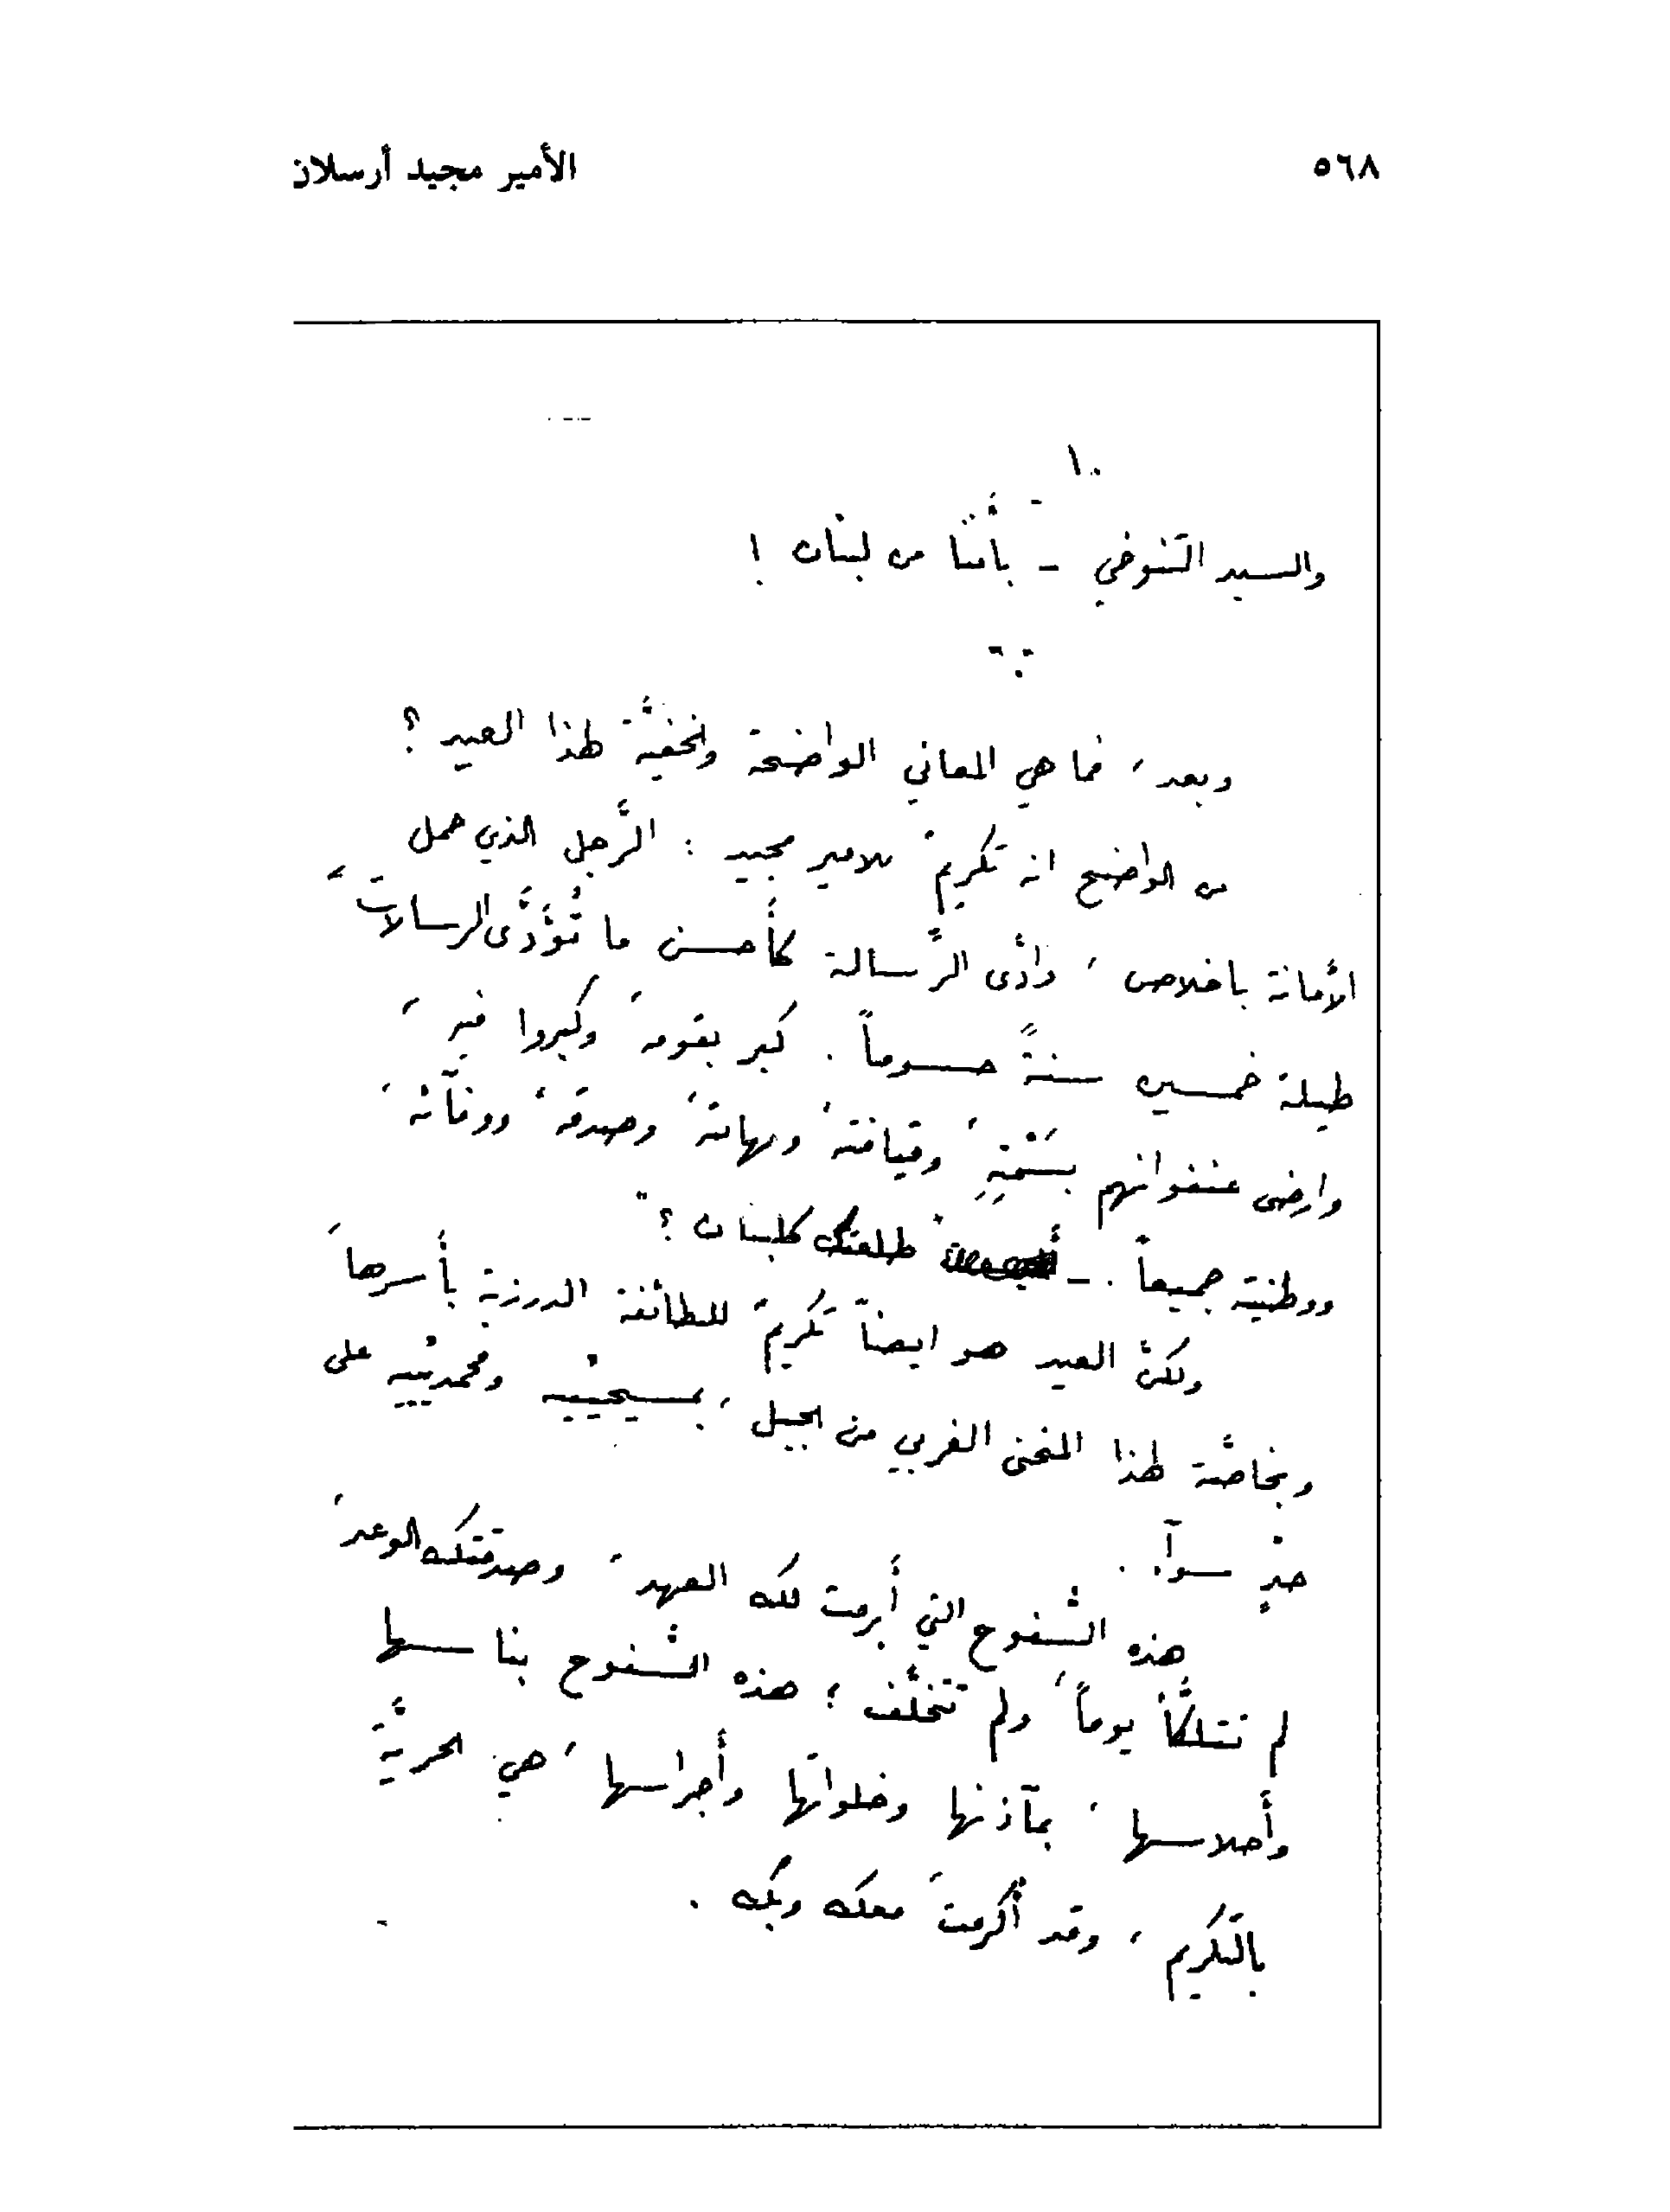 ٥٦٨
الأمير مجيد أرسلان
١٠
والسيد التنوخي - بأمتنا من لبنان !
وبعد، فما هي المعاني الواضحة والخفيَّة لهذا العيد ؟
من الواضح انه تكريمٌ للامير مجيد : الرَّجل الذي حمل
الأمانة باخلاص، وأدَّى الرِّسالة كأحسن ما تُؤَدَّى الرسالات،
طيلة خمسين سنةً حسوماً . كبر بقومه، وكبروا فيه،
وارضى عنفوانهم بسَمْتِهِ، وقيافته، ومهابته، وصدقه، ووفآئه،
ووطنيته جميعاً . - طلعتك كلبنان ؟"
ولكنَّ العيد هو ايضاً تكريمٌ للطائفة الدرزية بأسرها،
وبخاصَّة لهذا المنحنى الغربي من الجبل، بمسيحيّيه ومحمديّيه على
حدٍّ سوآء .
هذه السُّفوح التي أبرمت لك العهد، وصدقتك الوعد،
لم تتلكَّأ يوماً، ولم تتخلَّف ؛ هذه السُّفوح بناسها
وأحلاسها، بمآذنها وخلواتها وأجراسها، هي الحريَّة
بالتّكريم، وقد أُكرمت معك وبك .